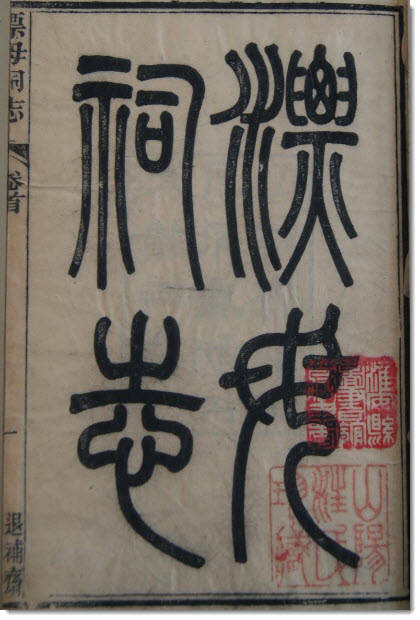 漂母
祠志
漂母祠志
卷首
一
退補齋
山陽